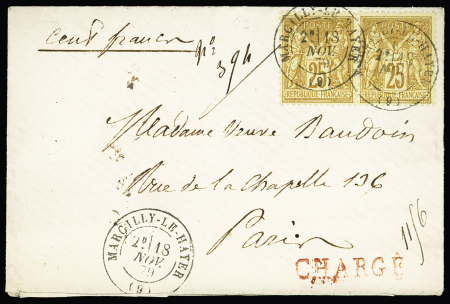 cent francs
N° 394
MARCILLY-LE-HAYER
2E 18
NOV.
79
(9)
POSTE
25
REPUBLIQUE FRANÇAISE
25
REPUBLIQUE FRANÇAISE
(9)
Madame Veuve Baudoin
Rue de la Chapelle 136
Paris
MARCILLY-LE-HAYER
2E 18
NOV.
79
(9)
CHARGÉ
11/6